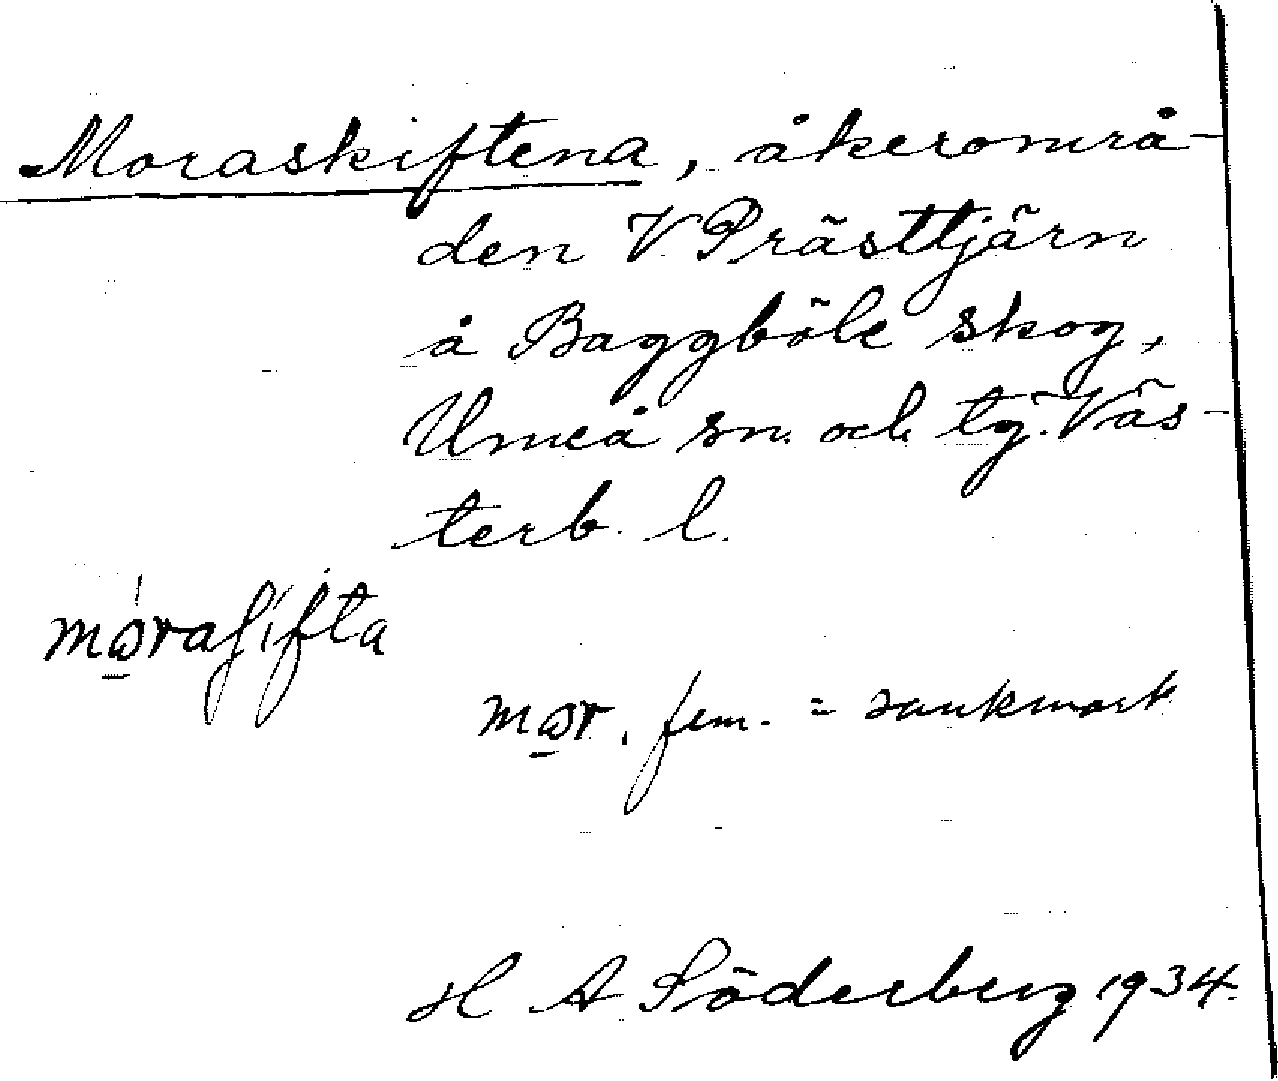 Moraskiftena, åkerområ-
den V Prästtjärn
å Baggböle skog,
Umeå sn. och tg. Väs-
terb. l.
mωraʃifta
mωr. fem. = sankmark
H A Söderberg 1934.